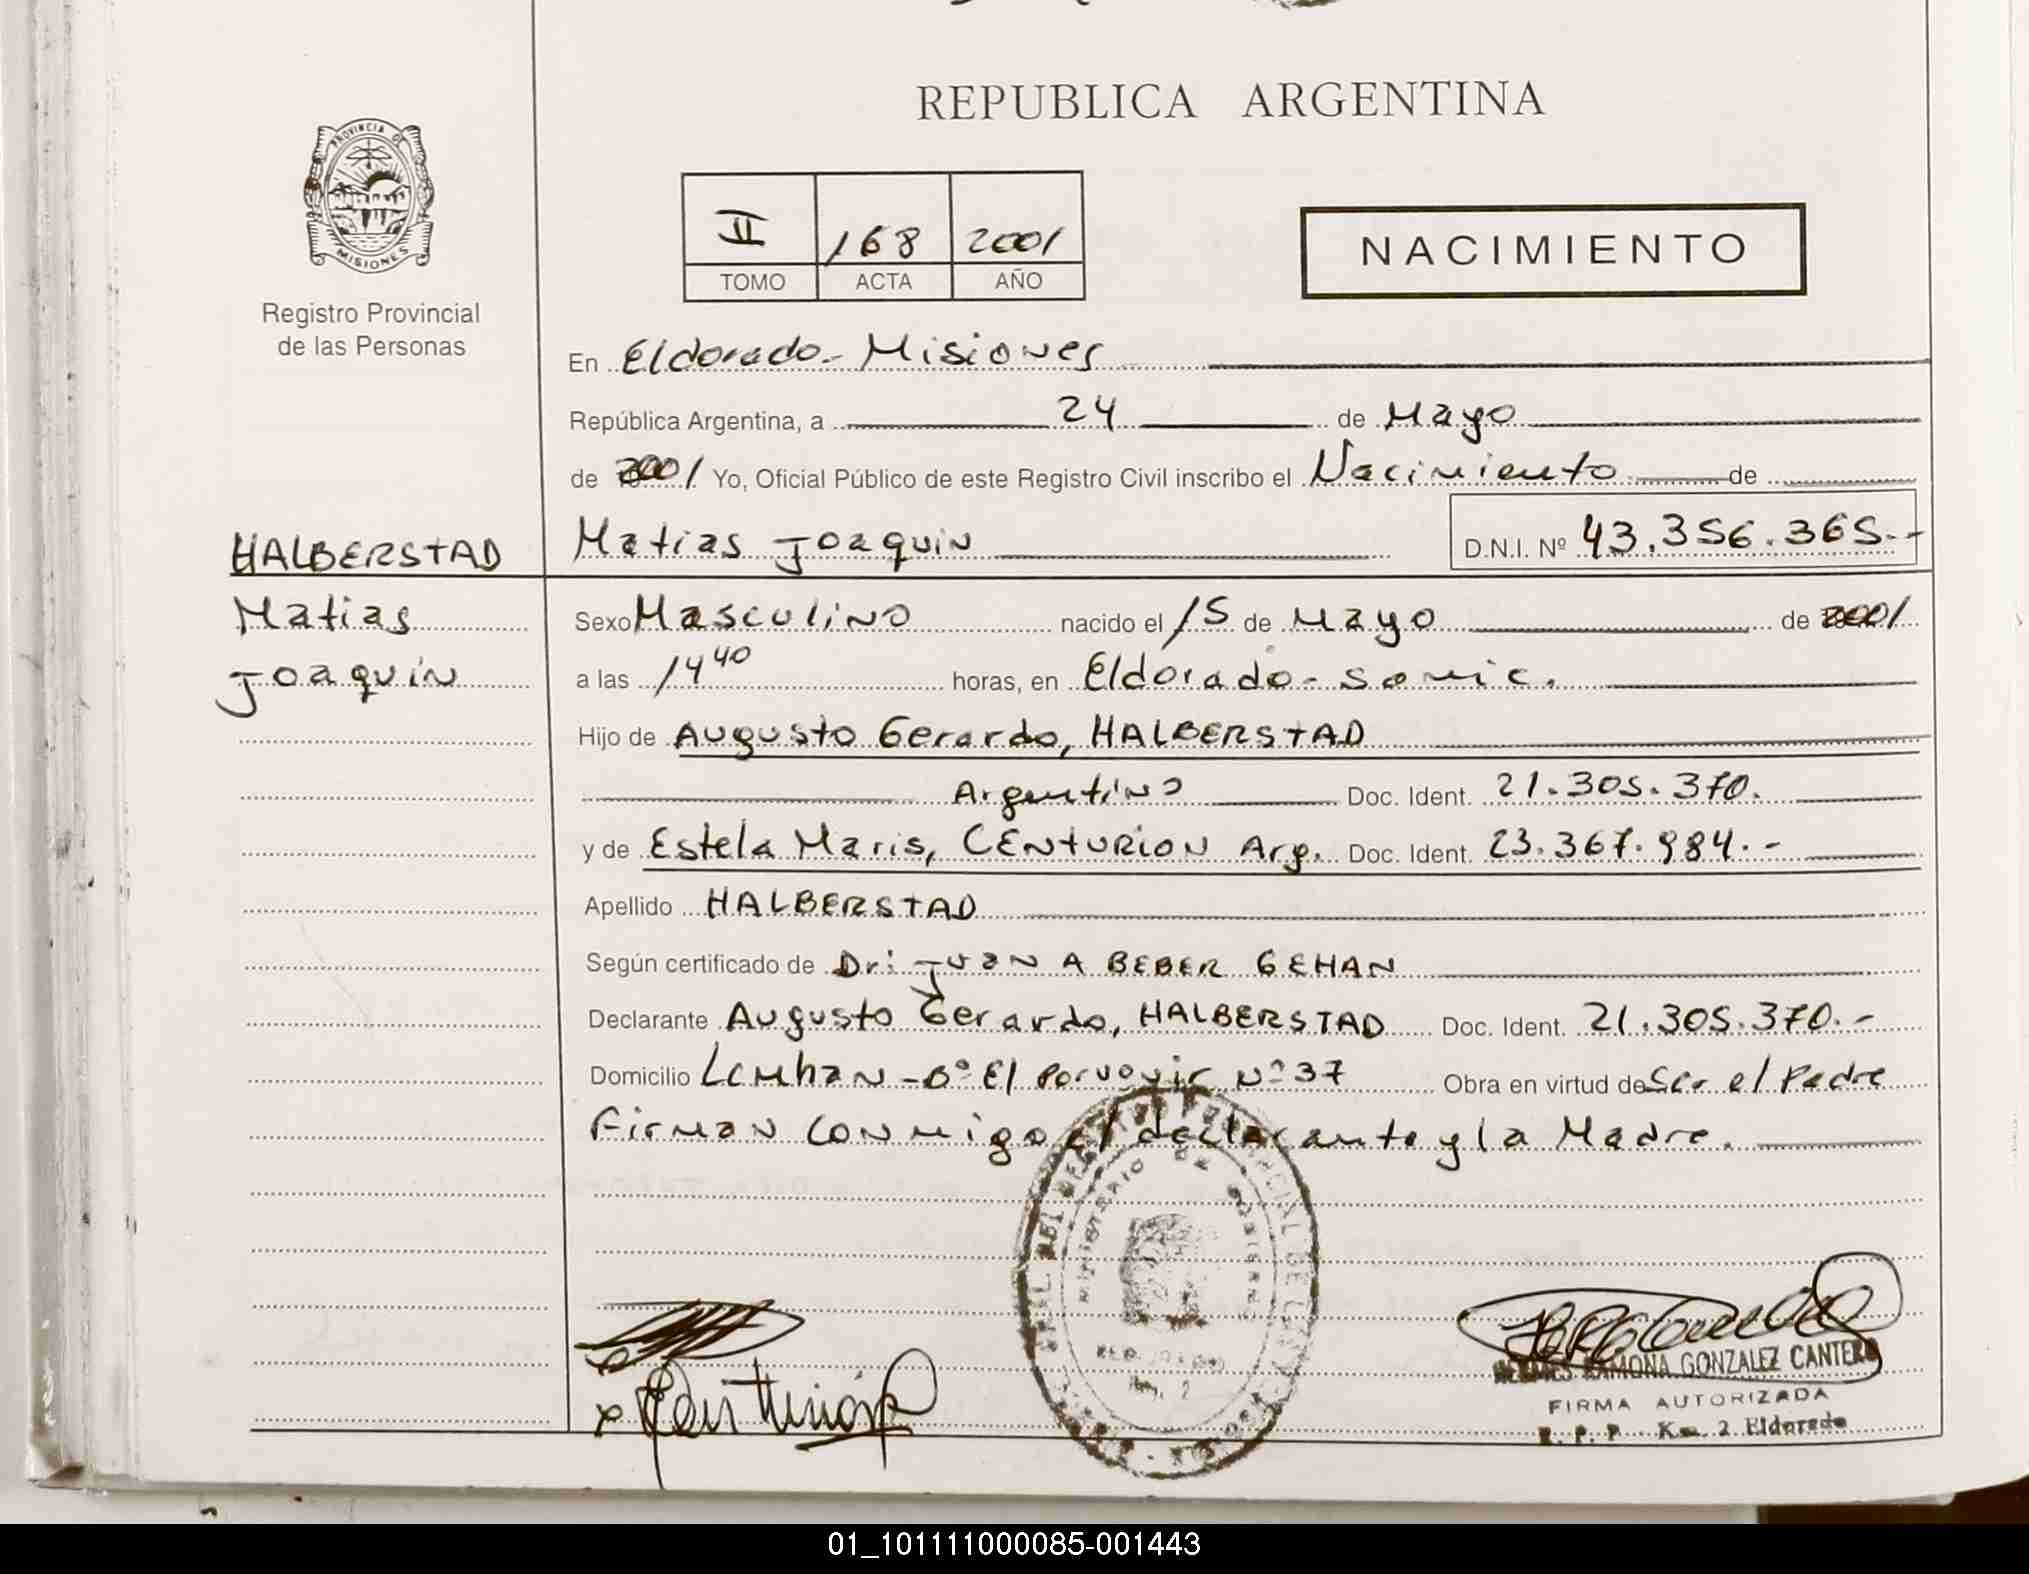 REPUBLICA ARGENTINA
PROVINCIA DE
MISIONES
Registro Provincial
de las Personas
II 168 2001
TOMO ACTA AÑO
NACIMIENTO
En Eldorado - Misiones
República Argentina, a 24 de Mayo
de 2001 Yo, Oficial Público de este Registro Civil inscribo el Nacimiento de
HALBERSTAD
Matias
Joaquin
Matias Joaquin D.N.I. Nº 43.356.365.-
Sexo Masculino nacido el 15 de Mayo de 2001
a las 14 40 horas, en Eldorado -
Hijo de Augusto Gerardo, HALBERSTAD
Argentino Doc. Ident. 21.305.370.
y de Estela Maris, CENTURION Arg. Doc. Ident. 23.367.984.-
Apellido HALBERSTAD
Según certificado de Dr: JUAN A BEBER GEHAN
Declarante Augusto Gerardo, HALBERSTAD Doc. Ident. 21.305.370.-
Domicilio Bº El Porvenir Nº 37 Obra en virtud de Ser el Padre
Firman conmigo el declarante y la Madre.
RAMONA GONZALEZ CANTERO
FIRMA AUTORIZADA
R. P. P. Km. 2 Eldorado
01_101111000085-001443